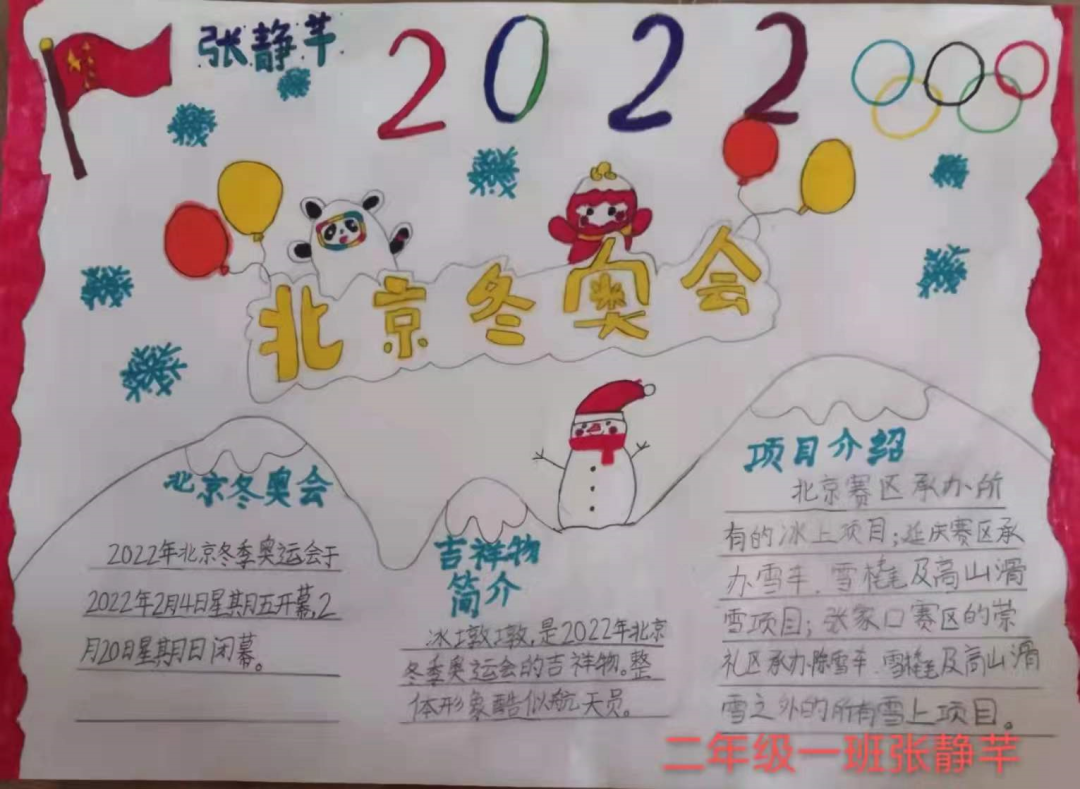 张静芊
2022
北京冬奥会
北京冬奥会
2022年北京冬季奥运会于
2022年2月4日星期五开幕,2
月20日星期日闭幕。
吉祥物
简介
冰墩墩,是2022年北京
冬季奥运会的吉祥物。整
体形象酷似航天员。
项目介绍
北京赛区承办所
有的冰上项目;延庆赛区承
办雪车、雪橇及高山滑
雪项目;张家口赛区的崇
礼区承办除雪车、雪橇及高山滑
雪之外的所有雪上项目。
二年级一班张静芊